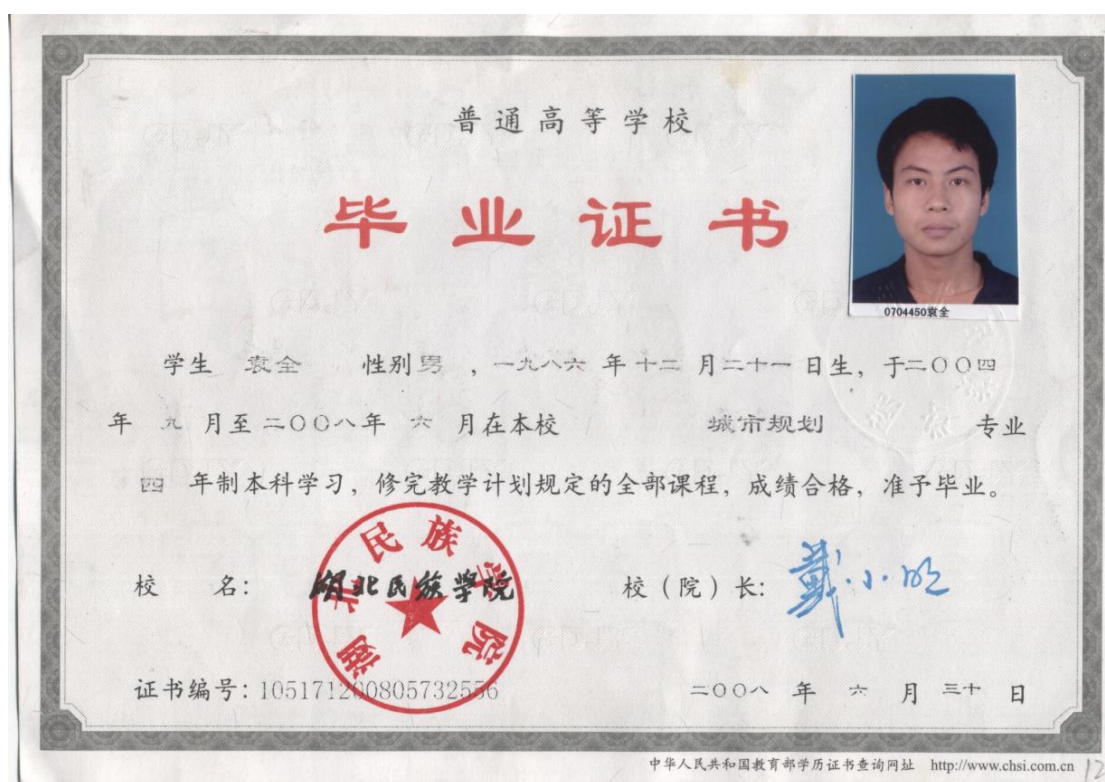 普通高等学校
毕业证书
0704450袁全
学生 袁全 性别男 ，一九八六 年 十二 月二十一 日生，于二〇〇四
年 九 月至 二〇〇八年 六 月在本校 城市规划 专业
四 年制本科学习，修完教学计划规定的全部课程，成绩合格，准予毕业。
校 名： 湖北民族学院
湖北民族学院
校（院）长： 戴小明
证书编号：105171200805732556
二〇〇八 年 六 月 三十 日
中华人民共和国教育部学历证书查询网址 http://www.chsi.com.cn